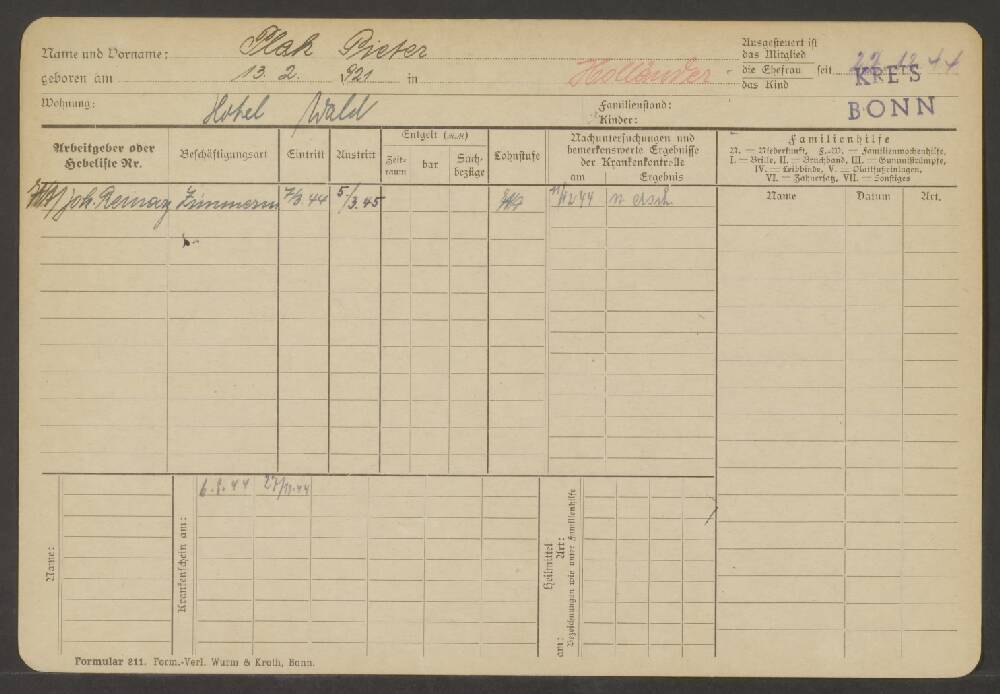 Name und Vorname: Plak Pieter
geboren am 13. 2. 921 in Holländer
Ausgesteuert ist
das Mitglied
die Ehefrau seit 22.12.44
das Kind
KREIS
BONN
Wohnung: Hotel Wald
Familienstand:
Kinder:
Arbeitgeber oder
Hebeliste Nr.
Beschäftigungsart
Eintritt
Austritt
Entgelt (RM)
Zeit-
raum
bar
Sach-
bezüge
Lohnstufe
Nachuntersuchungen und
bemerkenswerte Ergebnisse
der Krankenkontrolle
am Ergebnis
Familienhilfe
N. — Niederkunft, F.-W. — Familienwochenhilfe,
I. — Brille, II. — Bruchband, III. — Gummistrümpfe,
IV. — Leibbinde, V. — Plattfußeinlagen,
VI. — Zahnersatz, VII. — Sonstiges
Name Datum Art.
Joh. Zimmerm 7/3.44 5/3.45 n ersch
Name:
Krankenschein am:
27/11.44
Heilmittel
am: Art:
Bezeichnungen wie unter Familienhilfe
Formular 211. Form.-Verl. Wurm & Kroth, Bonn.